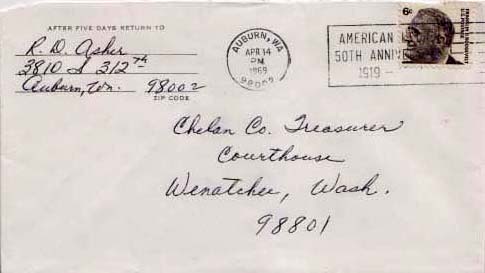 AFTER FIVE DAYS RETURN TO
R. D. Asher
3810 S 312th
Auburn, Wn. 98002
ZIP CODE
AUBURN, WA
APR 14
PM
1969
98002
AMERICAN
50TH ANNIV
1919 -
6¢
Chelan Co. Treasurer
Courthouse
Wenatchee, Wash.
98801